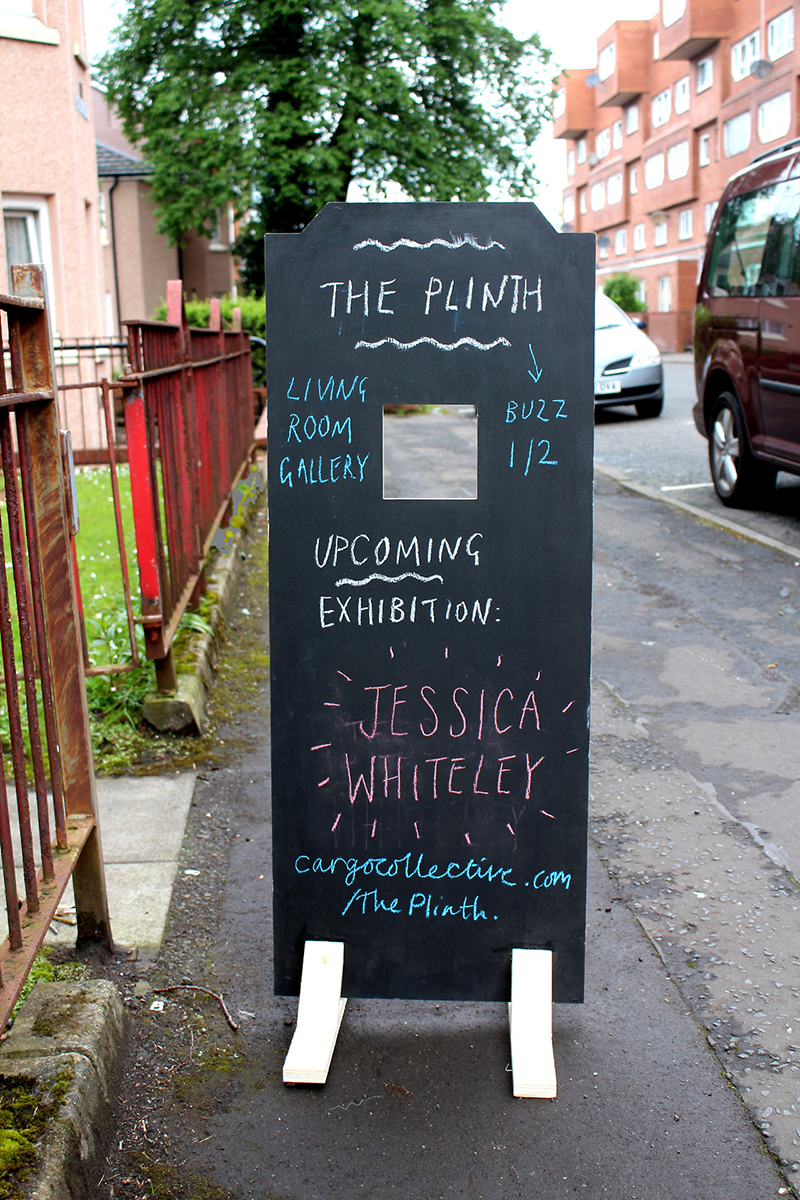 THE PLINTH
LIVING
ROOM
GALLERY
BUZZ
1/2
UPCOMING
EXHIBITION:
JESSICA
WHITELEY
cargocollective.com
/The Plinth.
DVA